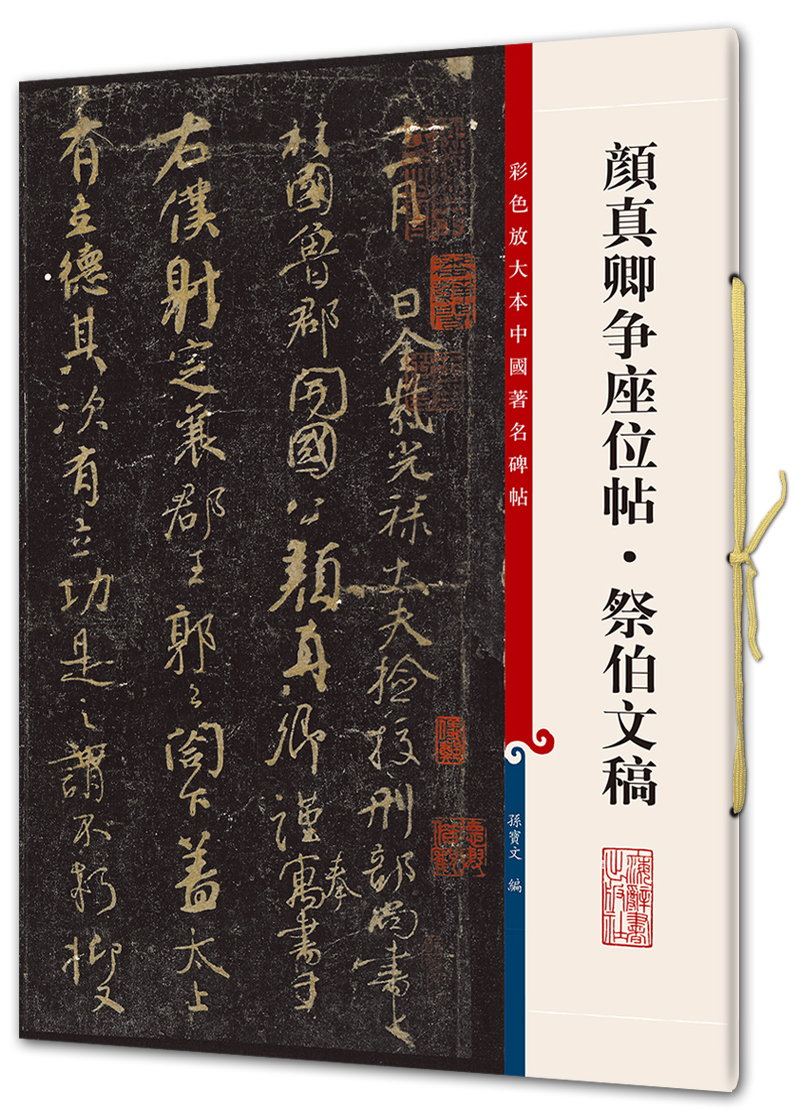 顔真卿争座位帖·祭伯文稿
海辭書
出版社
彩色放大本中國著名碑帖
孫寶文 編
十一月 日金紫光禄大夫檢校刑部尚書上
柱國魯郡開國公顔真卿謹奉寓書于
右僕射定襄郡王郭公閤下蓋太上
有立德其次有立功是之謂不朽抑又